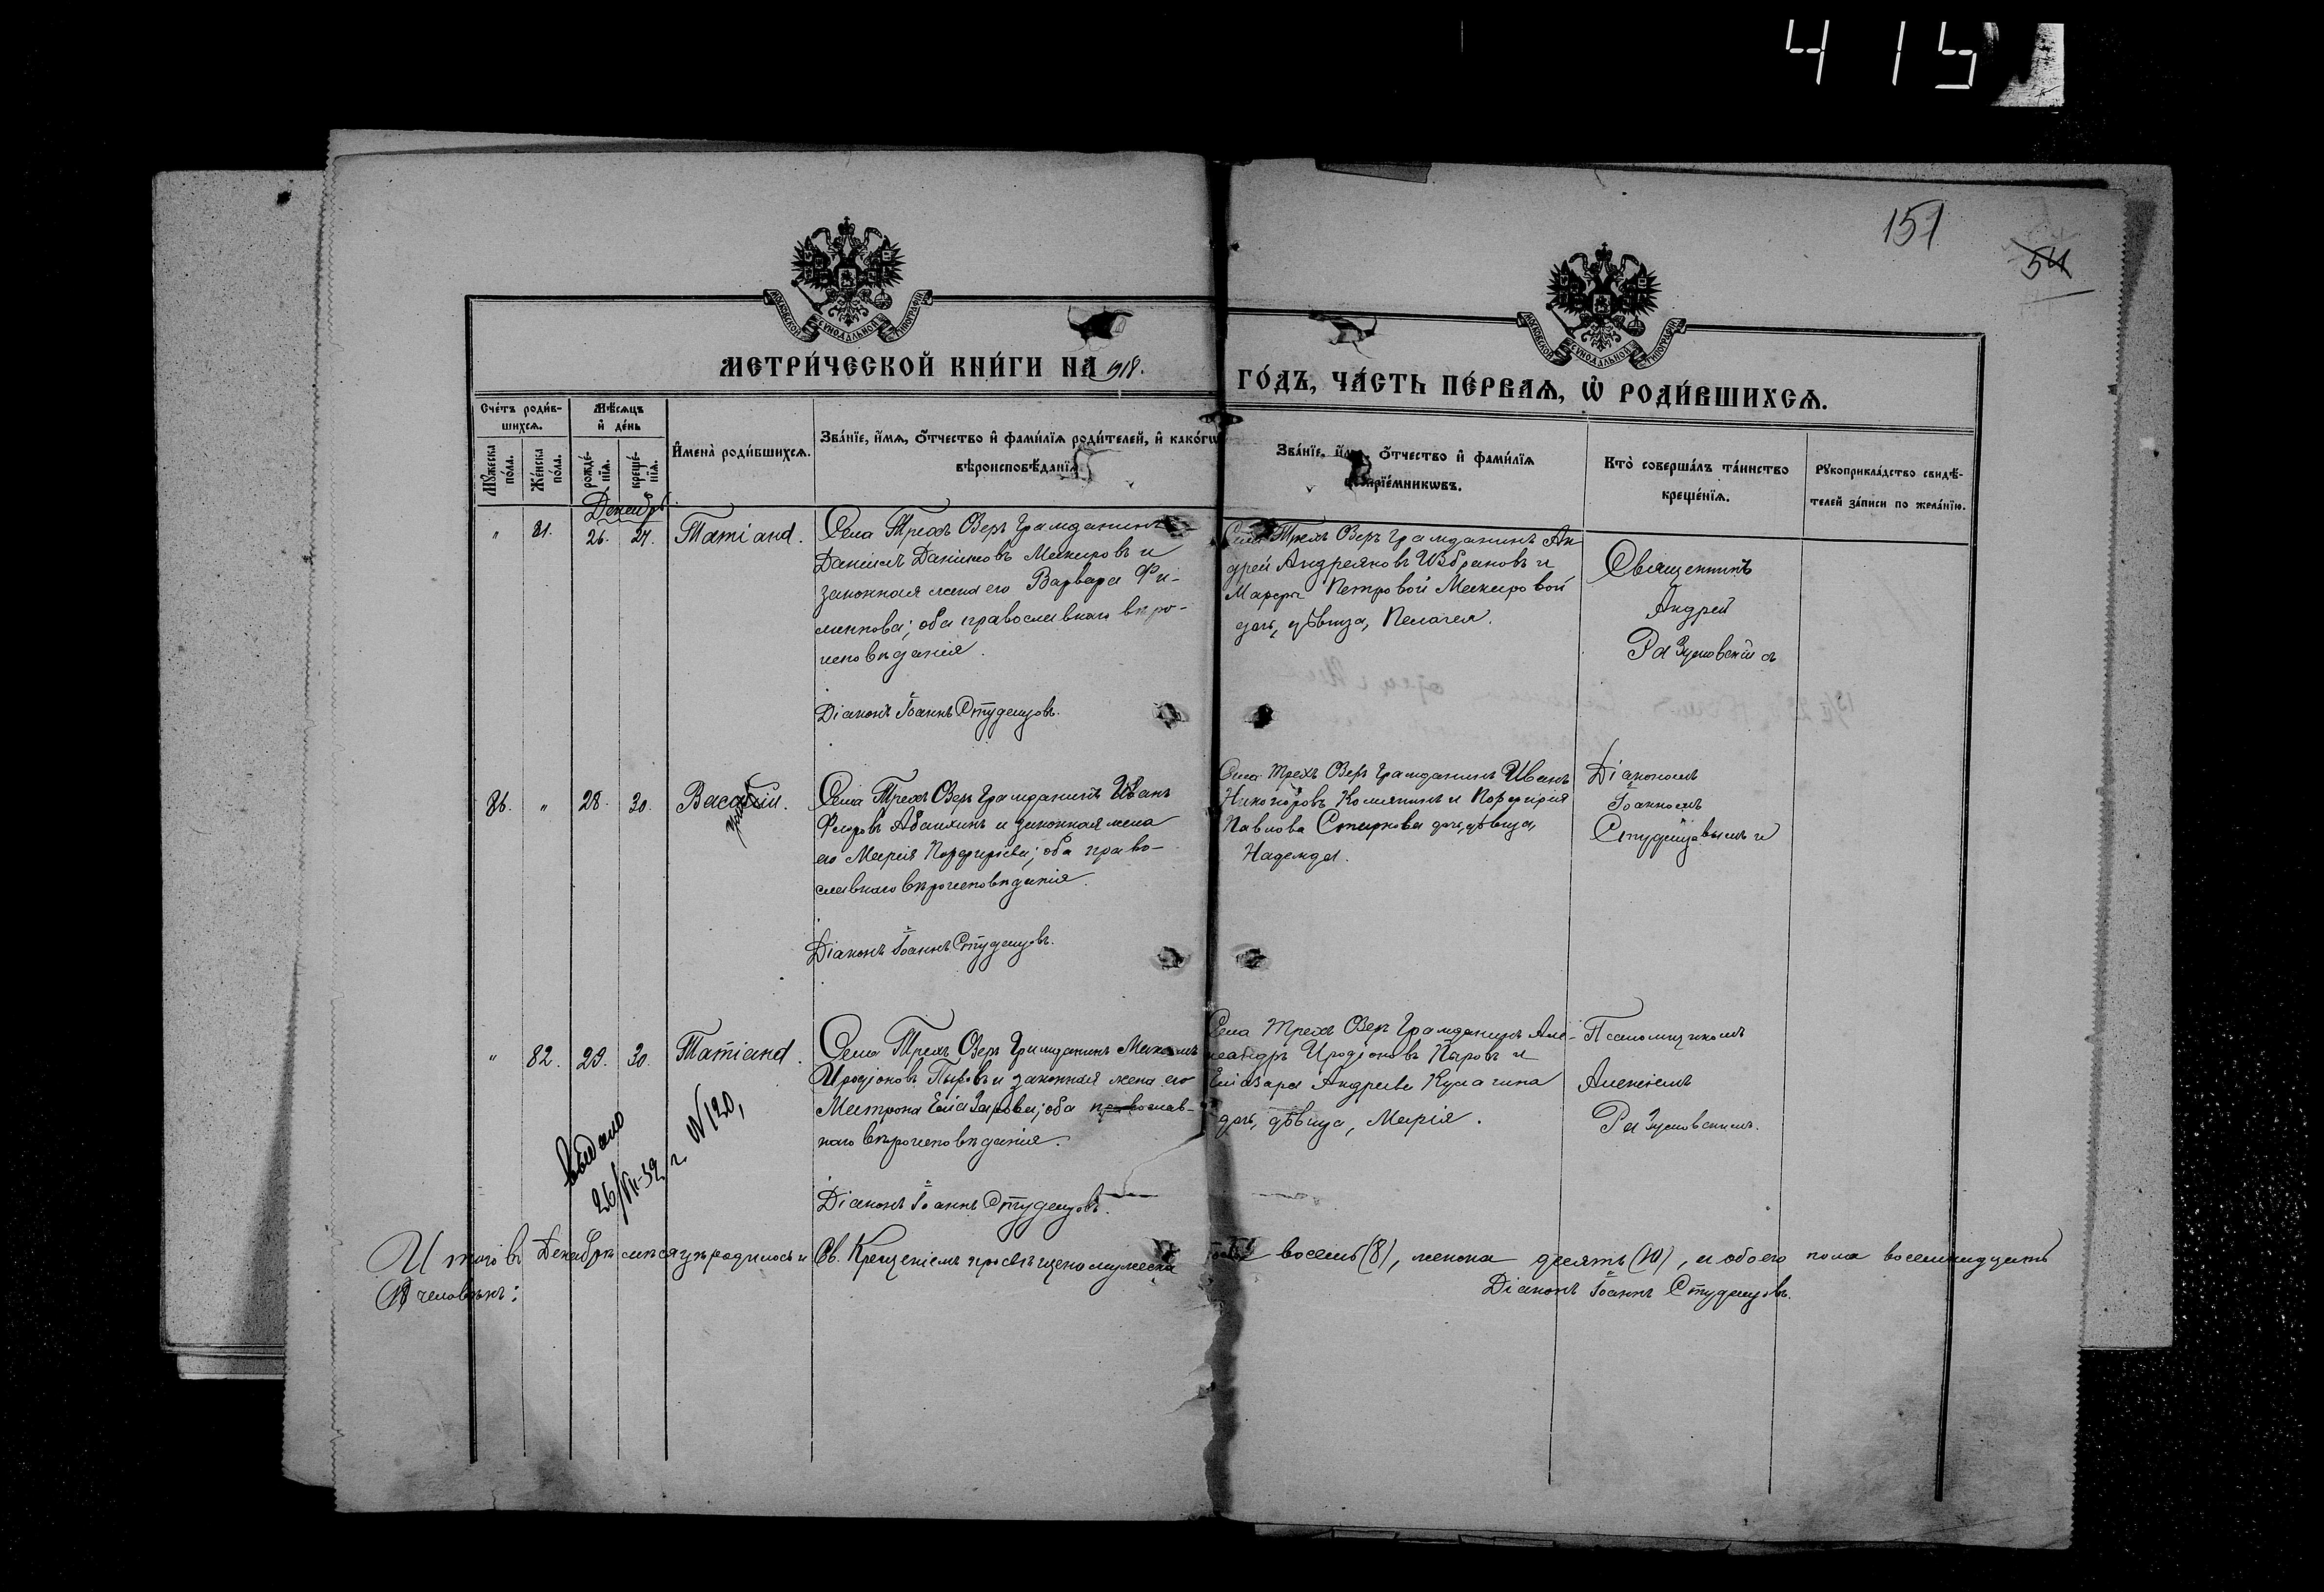 415
151
54
МОСКОВСКОЙ СѴНОДАЛЬНОЙ ТИПОГРАФІИ
МОСКОВСКОЙ СѴНОДАЛЬНОЙ ТИПОГРАФІИ
МЕТРИ́ЧЕСКОЙ КНИ́ГИ НА 1918. ГО́ДЪ, ЧА́СТЬ ПЕ́РВАѦ, Ѡ҆ РОДИ́ВШИХСѦ.
Сче́тъ роди́в-
шихсѧ.
Мѣ́сѧцъ
и҆ де́нь
Мꙋ́жеска
по́ла.
Же́нска
по́ла.
рожде́-
нїѧ.
креще́-
нїѧ.
И҆мена̀ роди́вшихсѧ.
Зва́нїе, и҆́мѧ, ѻ҆́тчество и҆ фами́лїѧ роди́телей, и҆ како́гѡ
вѣроисповѣ́данїѧ
Зва́нїе, ѻ҆́тчество и҆ фами́лїѧ
прїе́мникѡвъ.
Кто̀ соверша́лъ та́инство
креще́нїѧ.
Рꙋкоприкла́дство свидѣ́-
телей за́писи по жела́нїю.
Декабрь
" 81. 26. 27. Татіана.
Села Трехъ Озеръ гражданинъ
Даніилъ Даніиловъ Мажировъ и
законная жена его Варвара Фи-
липпова; оба православнаго веро-
исповѣданія.
Діаконъ Іоаннъ Студенцовъ.
Села Трехъ Озеръ гражданинъ Ан
дрей Андреяновъ Избрановъ и
Марѳы Петровой Мажировой
дочь, дѣвица, Пелагея.
Священникъ
Андрей
Разумовскій съ
86. " 28. 30. Василій.
Села Трехъ Озеръ гражданинъ Иванъ
Ѳедоровъ Абаихинъ и законная жена
его Марія Порфиріева; оба право-
славнаго вѣроисповѣданія.
Діаконъ Іоаннъ Студенцовъ.
Села Трехъ Озеръ гражданинъ Иванъ
Никоноровъ Комлянинъ и Порфирія
Павлова Смирнова дочь, дѣвица,
Надежда.
Діакономъ
Іоанномъ
Студенцовымъ и
" 82. 29. 30. Татіана.
Села Трехъ Озеръ гражданинъ Михаилъ
Иродіоновъ Пыровъ и законная жена его
Матрона Еліазарова; оба православ-
наго вѣроисповѣданія.
Діаконъ Іоаннъ Студенцовъ.
Села Трехъ Озеръ гражданинъ Але-
ксандръ Иродіоновъ Пыровъ и
Еліазара Андреева Кулагина
дочь, дѣвица, Марія.
Псаломщикомъ
Алексіемъ
Разумовскимъ.
Выдано
26/VII-39 г. N 120,
Итого въ Декабрѣ мѣсяцѣ родилось и Св. Крещеніемъ просвѣщено мужеска пола восемь (8), женска десять (10), и обоего пола восемнадцать
18 человѣкъ:
Діаконъ Іоаннъ Студенцовъ.